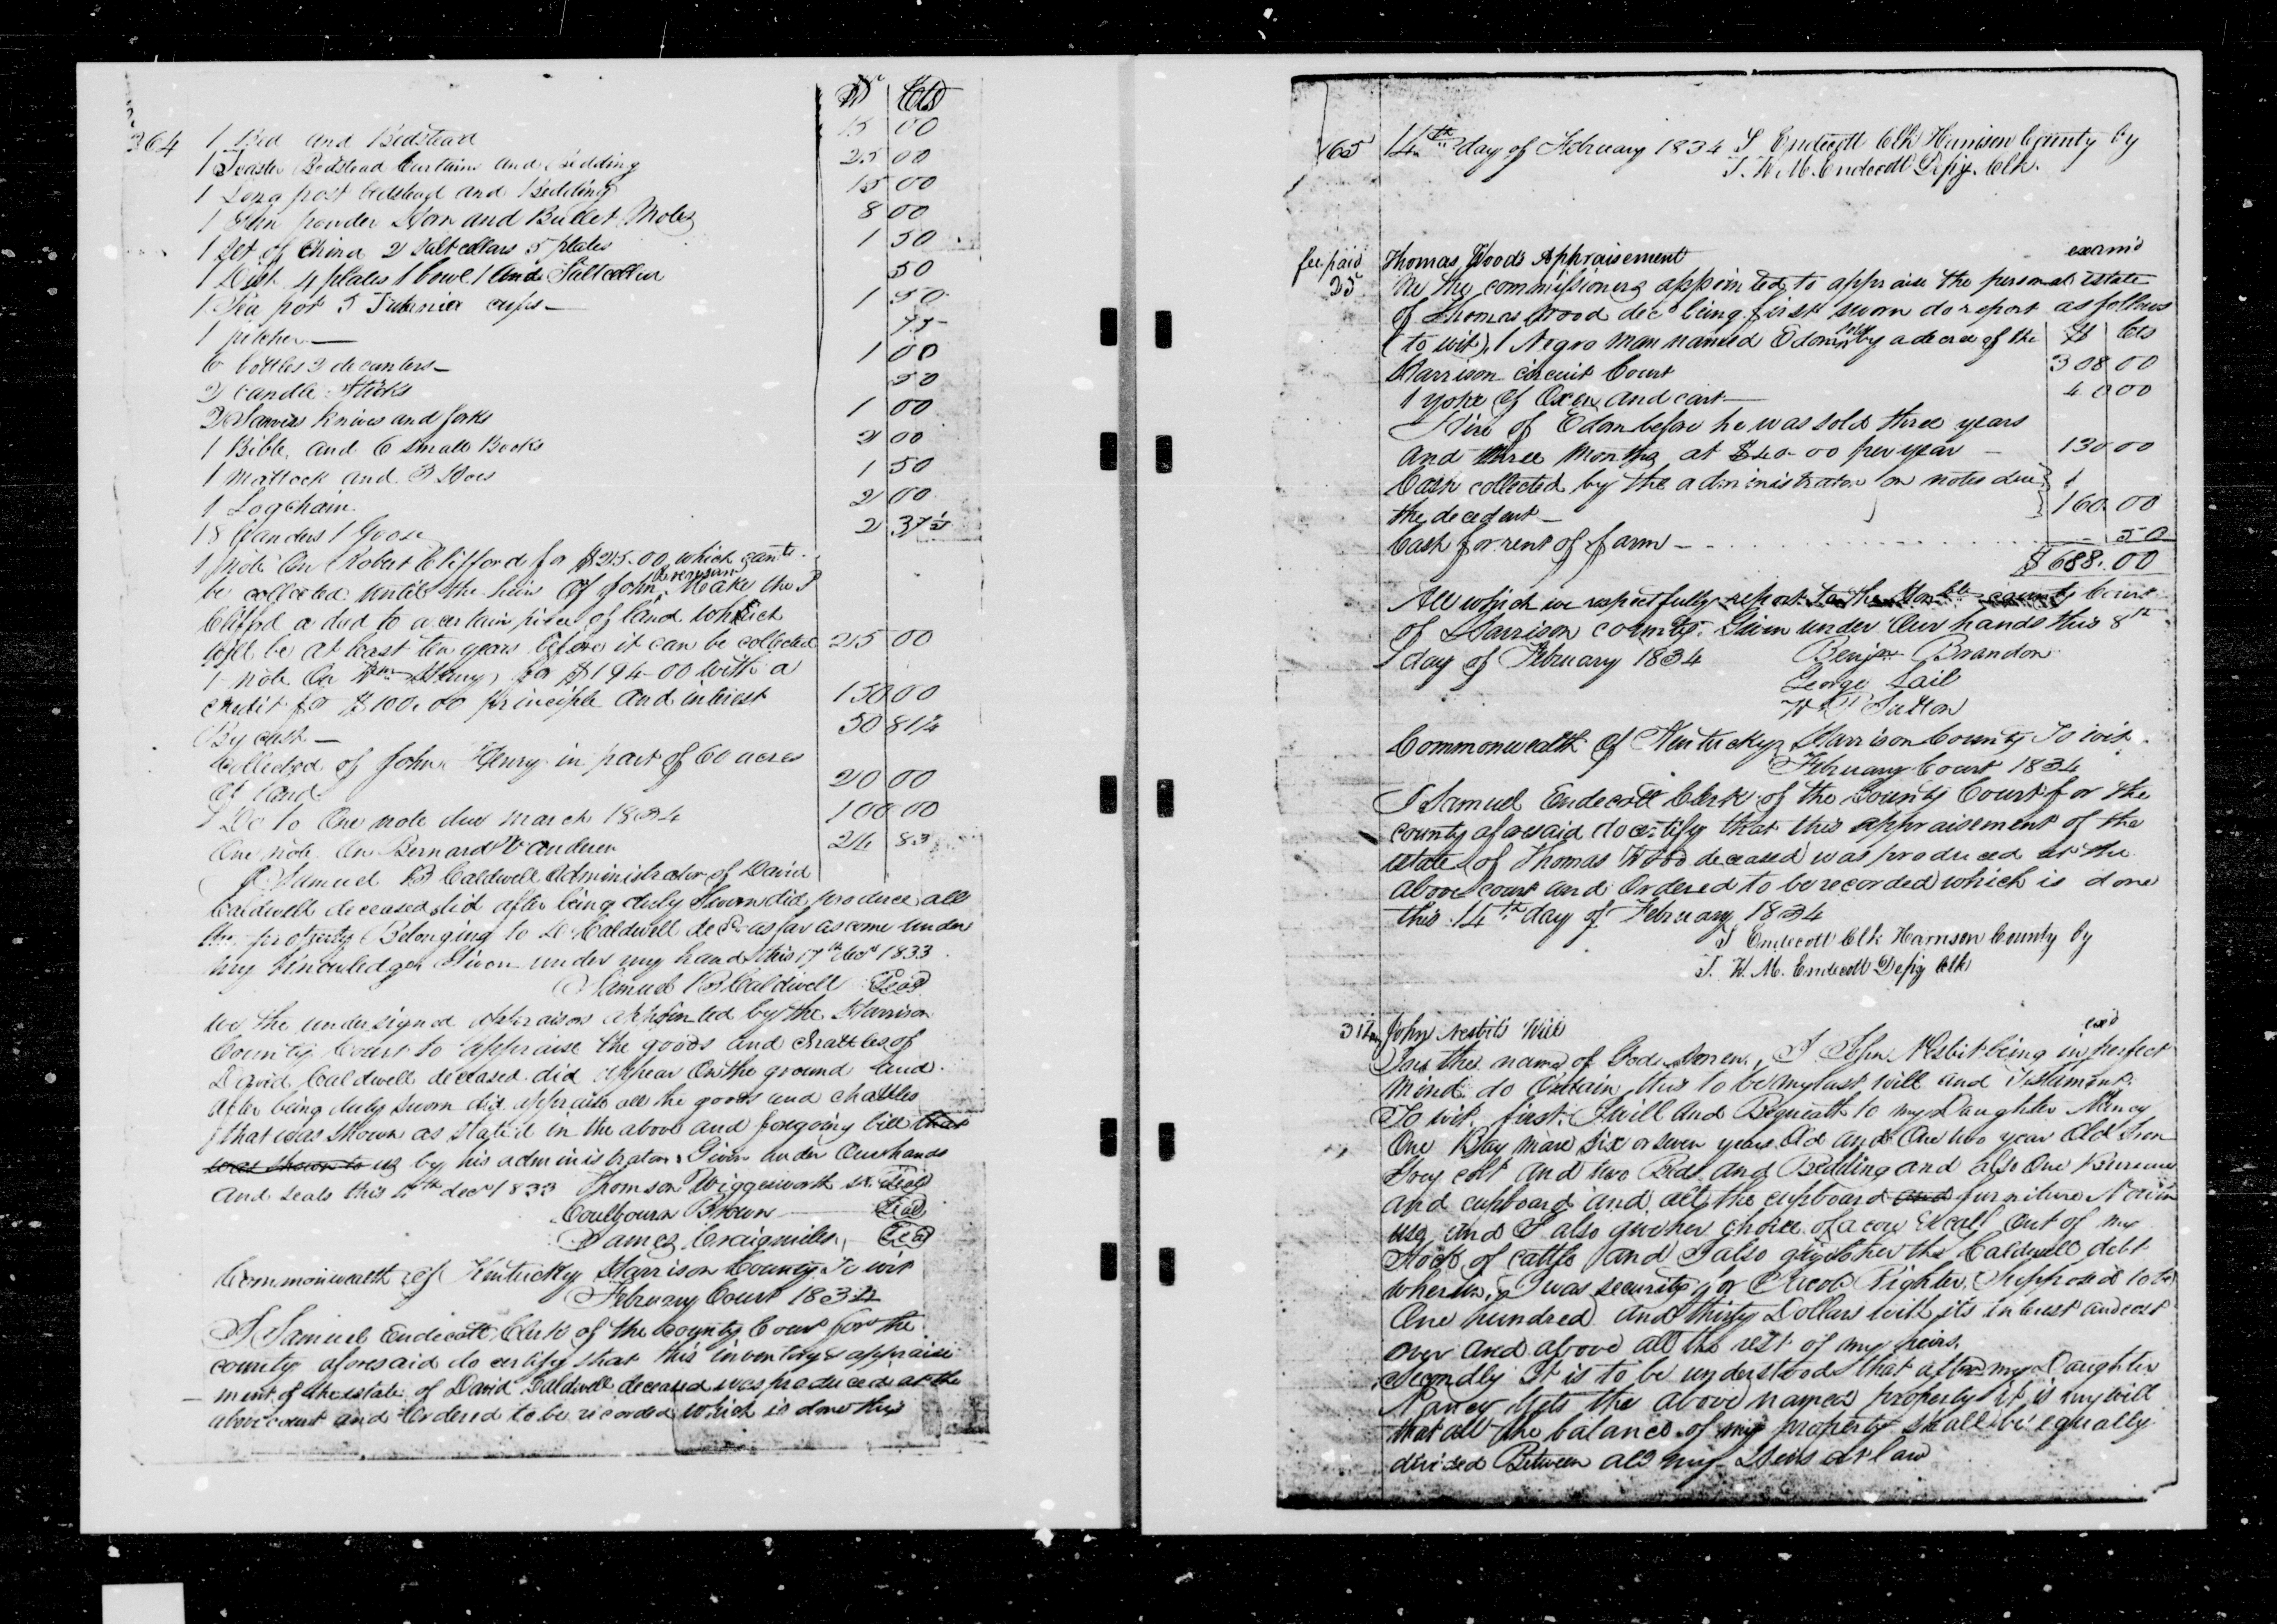 $ Cts
364 1 Bed and Bedstead 15 00
1 Teaster Bedstead Curtains and Bedding 25 00
1 Long post bedstead and Bedding 15 00
1 Gun powder Horn and Bullet Moles 8 00
1 Set of China 2 Salt cellars 5 plates 1 50
1 Dish 4 plates 1 bowl 1 and Saltcellar 50
1 Tea pot 5 cups 1 50
1 pitcher 75
6 bottles 2 decanters 1 00
2 Candle Sticks 50
2 knives and forks 1 00
1 Bible and 6 small Books 2 00
1 Mattock and 3 Hoes 1 50
1 Logchain 2 00
18 Ganders 1 Goose 2 37½
1 note On Robert Clifford for $25.00 which cant
be collected until the heirs of John make the
Clifford a deed to a certain piece of land which
will be at least ten years before it can be collected 25 00
1 note On Wm Henry for $194-00 with a
credit for $100.00 principle and interest 150 00
By cash 50 81¼
Collected of John Henry in part of 60 acres
of land 20 00
Do To One note due March 1834 100 00
One note On Bernard Vanderen 24 83
I Samuel B Caldwell Administrator of David
Caldwell deceased did after being duly Sworn did produce all
the property Belonging to D Caldwell decd as far as come under
my knowledge Given under my hand this 17th decr 1833
Samuel B Caldwell Seal
We the undersigned appraisors appointed by the Harrison
County Court to appraise the goods and chattles of
David Caldwell deceased did appear On the ground and
after being duly sworn did appraise all the goods and chattles
that was shown as stated in the above and foregoing bill that
was shown to us by his administrator Given under Our hands
and seals this decr 1833 Thomson Wigglesworth sr Seal
Coulbourn Brown Seal
James Craigmiles Seal
Commonwealth of Kentucky Harrison County To wit
February Court 1834
I Samuel Endecott Clerk of the County Court for the
county aforesaid do certify that this inventory & appraise
ment of the estate of David Caldwell deceased was produced at the
above court and Ordered to be recorded which is done this
365 14th day of February 1834 S Endecott Clk Harrison County by
T. W. M. Endecott Depy. Clk.
fee paid Thomas Woods Appraisement exam'd
25 We the commissioners appointed to appraise the personal estate
of Thomas Wood decd being first sworn do report as follows
(to wit) 1 Negro man named Edom sold by a decree of the $ Cts
Harrison circuit Court 308 00
1 yoke of Oxen and cart 40 00
Hire of Edom before he was sold three years
and three months at $40-00 per year 130 00
Cash collected by the administrator on notes due
the decedent 160.00
Cash for rent of farm 50
$688.00
All which we respectfully report to the Honble county Court
of Harrison county. Given under Our hands this 8th
day of February 1834 Benjn Brandon
George Lail
W Sutton
Commonwealth of Kentucky Harrison County To wit
February Court 1834
I Samuel Endecott Clerk of the County Court for the
county aforesaid do certify that this appraisement of the
estate of Thomas Wood deceased was produced at the
above court and Ordered to be recorded which is done
this 14th day of February 1834
S Endecott Clk Harrison County by
T. W. M. Endecott Depy Clk
John Nesbit's Will exd
In the name of God Amen, I John Nesbit being in perfect
mind do Ordain this to be my last will and Testament
To wit, first. I will and Bequeath to my Daughter Nancy
One Bay mare Six or seven years Old and One two year Old Iron
Grey colt and two Beds and Bedding and also One Bureau
and cupboard and all the cupboard and furniture Now in
use and I also give her choice of a cow & calf Out of my
Stock of cattle and I also give her the Caldwell debt
wherein I was security for Jacob Righter Supposed to be
One hundred and thirty Dollars with its interest and cost
over and above all the rest of my heirs.
Secondly It is to be understood that after my Daughter
Nancy Gets the above named property it is my will
that all the balance of my property shall be equally
devised Between all my Heirs at law